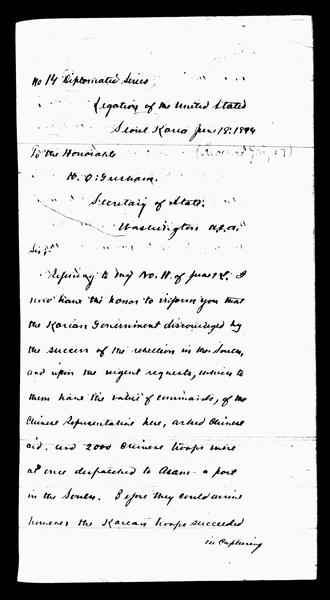 No 14 Diplomatic Series
Legation of the United States
Seoul Korea June 18. 1894
To the Honorable
W. Q. Gresham.
Secretary of State.
Washington U.S.A.
Sir:
Refering to my No. 11. of June 1st. I
now have the honor to inform you that
the Korean Government discouraged by
the success of the rebellion in the South,
and upon the urgent requests, which to
them have the value of commands, of the
Chinese Representative here, asked Chinese
aid. and 2000 Chinese troops were
at once despatched to Asan - a port
in the South. Before they could arrive
however the Korean troops succeeded
in capturing